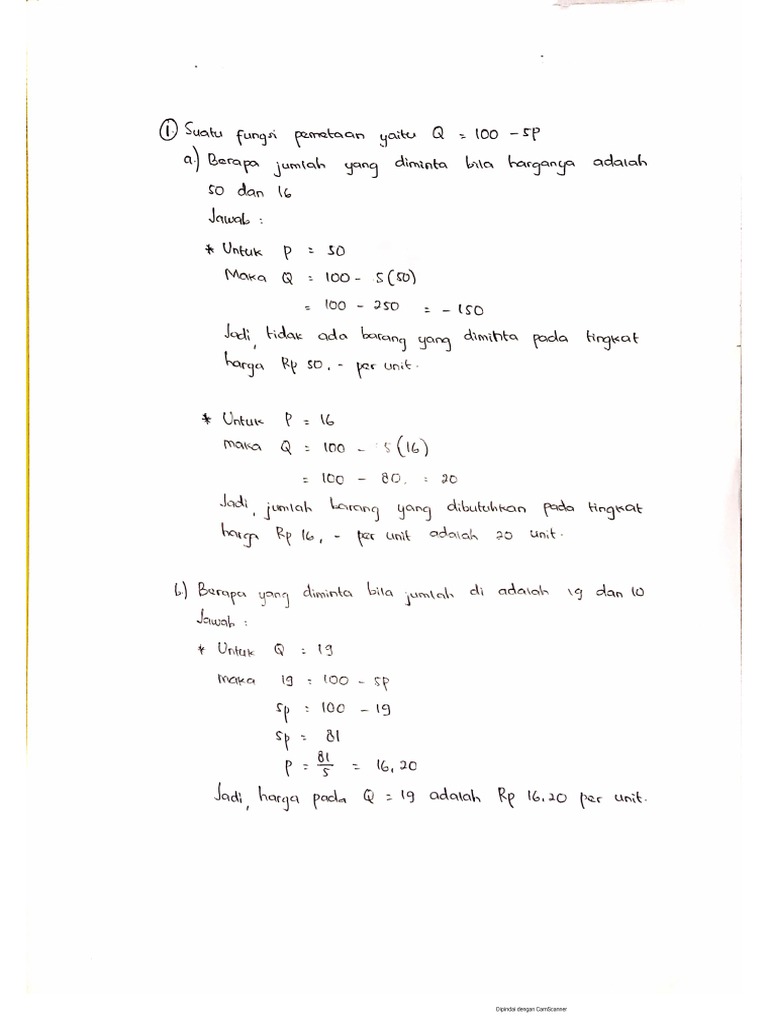 1. Suatu fungsi pemetaan yaitu Q = 100 - 5P
a.) Berapa jumlah yang diminta bila harganya adalah
50 dan 16
Jawab :
* Untuk P = 50
Maka Q = 100 - 5(50)
= 100 - 250 = - 150
Jadi, tidak ada barang yang diminta pada tingkat
harga Rp 50, - per unit.
* Untuk P = 16
maka Q = 100 - 5(16)
= 100 - 80. = 20
Jadi, jumlah barang yang dibutuhkan pada tingkat
harga Rp 16, - per unit adalah 20 unit.
b.) Berapa yang diminta bila jumlah di adalah 19 dan 10
Jawab :
* Untuk Q = 19
maka 19 = 100 - 5p
5p = 100 - 19
5p = 81
P = 81/5 = 16,20
Jadi, harga pada Q = 19 adalah Rp 16.20 per unit.
Dipindai dengan CamScanner